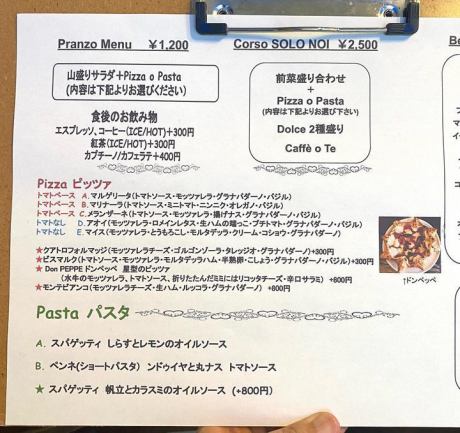 Pranzo Menu ￥1,200
山盛りサラダ+Pizza o Pasta
(内容は下記よりお選びください)
食後のお飲み物
エスプレッソ、コーヒー(ICE/HOT)+300円
紅茶(ICE/HOT)+300円
カプチーノ/カフェラテ+400円
Corso SOLO NOI ￥2,500
前菜盛り合わせ
+
Pizza o Pasta
(内容は下記よりお選び下さい)
Dolce 2種盛り
Caffè o Te
Be
Pizza ピッツァ
トマトベース A. マルゲリータ(トマトソース・モッツァレラ・グラナパダーノ・バジル)
トマトベース B. マリナーラ(トマトソース・ミニトマト・ニンニク・オレガノ・バジル)
トマトベース C. メランザーネ(トマトソース・モッツァレラ・揚げナス・グラナパダーノ・バジル)
トマトなし D. アオイ(モッツァレラ・ロメインレタス・生ハムの端っこ・プチトマト・グラナパダーノ)
トマトなし E. マイス(モッツァレラ・とうもろこし・モルタデッラ・クリーム・コショウ・グラナパダーノ)
★クアトロフォルマッジ(モッツァレラチーズ・ゴルゴンゾーラ・タレッジオ・グラナパダーノ)+300円
★ビスマルク(トマトソース・モッツァレラ・モルタデッラハム・半熟卵・こしょう・グラナパダーノ・バジル)+300円
★ Don PEPPE ドンペッペ 星型のピッツァ
(水牛のモッツァレラ、トマトソース、折りたたんだミミにはリコッタチーズ・辛口サラミ) +800円
★モンテビアンコ(モッツァレラチーズ・生ハム・ルッコラ・グラナパダーノ) +800円
↑ドンペッペ
Pasta パスタ
A. スパゲッティ しらすとレモンのオイルソース
B. ペンネ(ショートパスタ) ンドゥイヤと丸ナス トマトソース
★ スパゲッティ 帆立とカラスミのオイルソース (+800円)